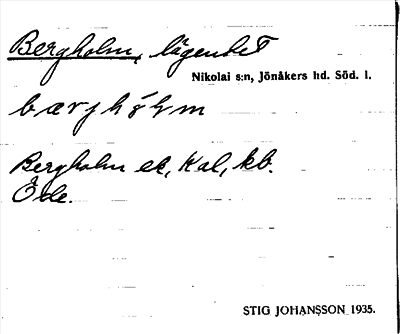 Bergholm, lägenhet
Nikolai s:n, Jönåkers hd. Söd. l.
Bergholm ek, Kal, kb.
Öde.
STIG JOHANSSON 1935.